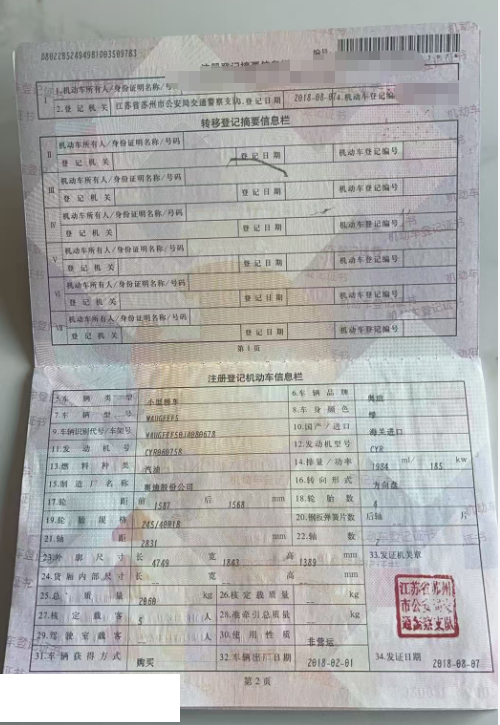 注册登记摘要信息栏
I 1.机动车所有人/身份证明名称/号码
2.登记机关 江苏省苏州市公安局交通警察支队 3.登记日期 2018-08-07 4.机动车登记编号
转移登记摘要信息栏
II 机动车所有人/身份证明名称/号码
登记机关 登记日期 机动车登记编号
III 机动车所有人/身份证明名称/号码
登记机关 登记日期 机动车登记编号
IV 机动车所有人/身份证明名称/号码
登记机关 登记日期 机动车登记编号
V 机动车所有人/身份证明名称/号码
登记机关 登记日期 机动车登记编号
VI 机动车所有人/身份证明名称/号码
登记机关 登记日期 机动车登记编号
VII 机动车所有人/身份证明名称/号码
登记机关 登记日期 机动车登记编号
第 1 页
注册登记机动车信息栏
5.车辆类型 小型轿车 6.车辆品牌 奥迪
7.车辆型号 WAUGFEF5 8.车身颜色
9.车辆识别代号/车架号 10.国产/进口 海关进口
11.发动机号 CYR060758 12.发动机型号 CYR
13.燃料种类 汽油 14.排量/功率 1984 ml/ 185 kw
15.制造厂名称 奥迪股份公司 16.转向形式 方向盘
17.轮距 前 1587 后 1568 mm 18.轮胎数 4
19.轮胎规格 245/40R18 20.钢板弹簧片数 后轴 片
21.轴距 2831 mm 22.轴数 2
23.外廓尺寸 长 4749 宽 1843 高 1389 mm 33.发证机关章
24.货厢内部尺寸 长 宽 高 mm
25.总质量 2060 kg 26.核定载质量 kg
27.核定载客 5 人 28.准牵引总质量 kg
29.驾驶室载客 人 30.使用性质 非营运
31.车辆获得方式 购买 32.车辆出厂日期 2018-02-01 34.发证日期 2018-08-07
江苏省苏州
市公安局交
通警察支队
第 2 页